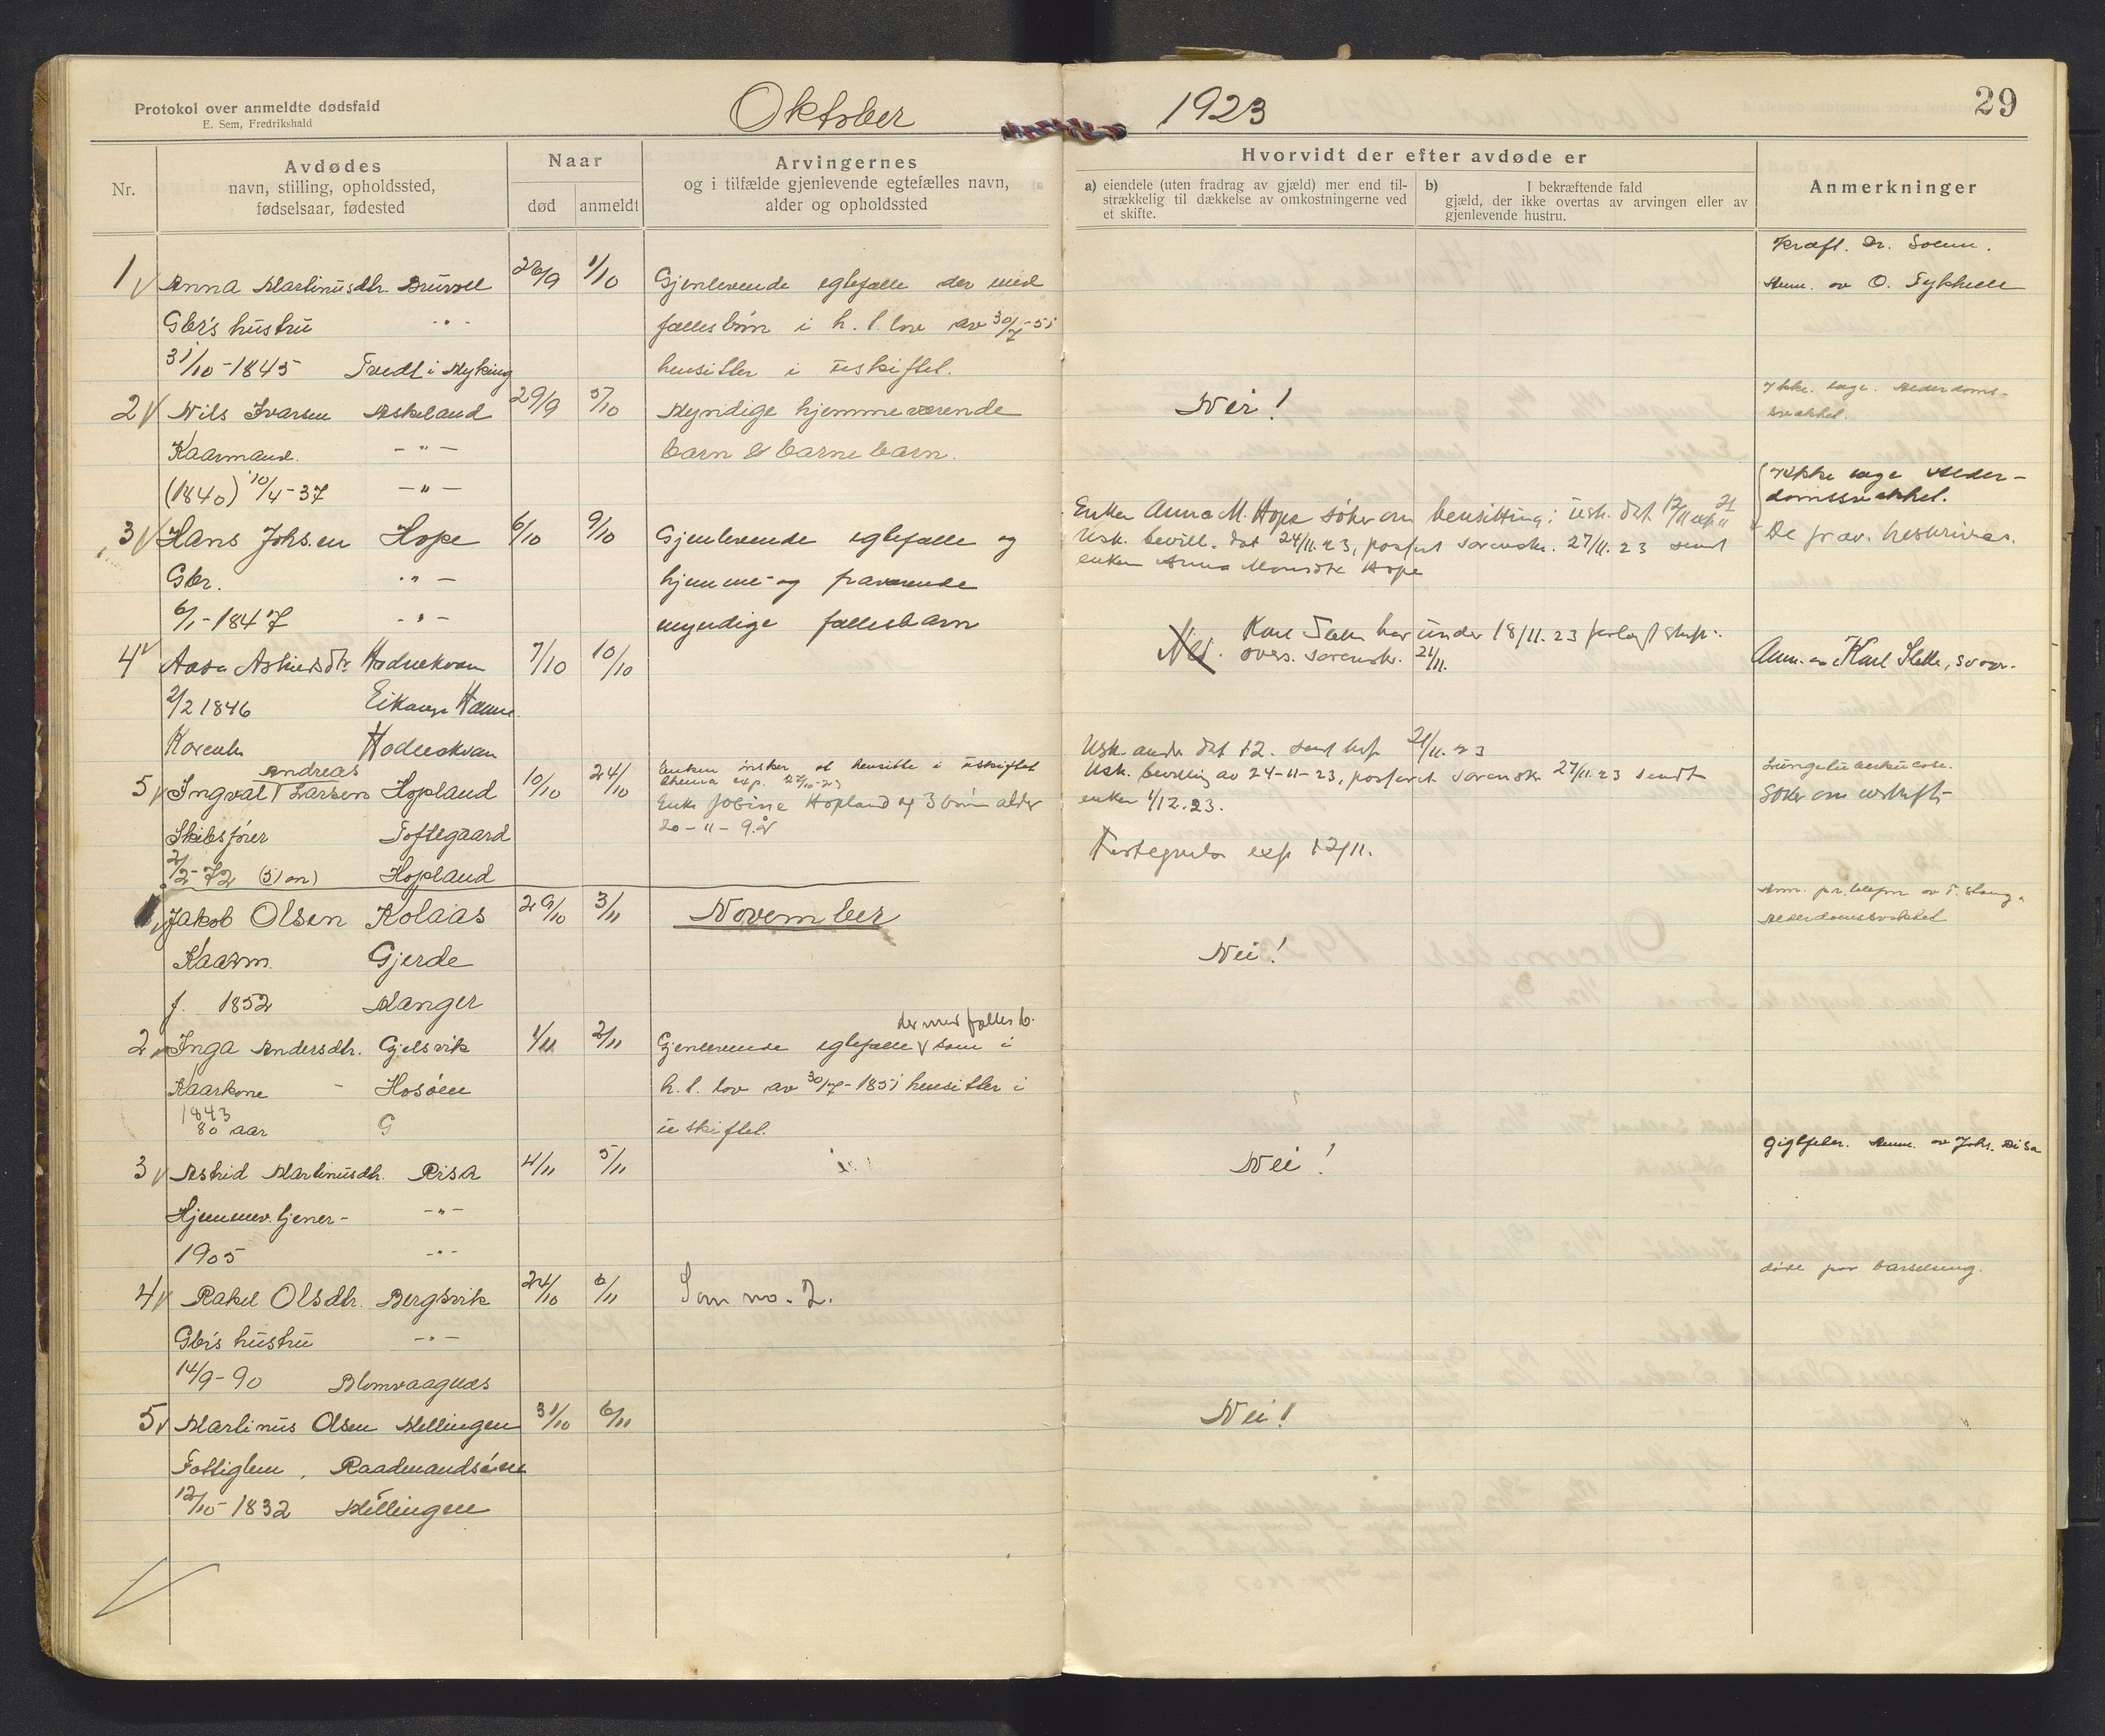 Protokol over anmeldte dødsfald
E. Sem, Fredrikshald
Oktober 1923
29
Nr.
Avdødes
navn, stilling, opholdssted,
fødselsaar, fødested
Naar
død
anmeldt
Arvingernes
og i tilfælde gjenlevende egtefælles navn,
alder og opholdssted
Hvorvidt der efter avdøde er
a) eiendele (uten fradrag av gjæld) mer end til-
strækkelig til dækkelse av omkostningerne ved
et skifte.
b) I bekræftende fald
gjæld, der ikke overtas av arvingen eller av
gjenlevende hustru.
Anmerkninger
Kræft. Dr.
1 Anna Martinusdtr. 26/9 1/10 Gjenlevende egtefælle der med
Anm. av O.
Gbr's hustru - " - fællesbørn i h. t. lov av 30/7-51
31/10-1845 Tvedt i Myking hensitter i uskiftet.
2 Nils Ivarsen Askeland 29/9 5/10 Myndige hjemmeværende Nei!
Ikke læge. Alderdoms-
svakhet.
Kaarmand. - " - barn & barnebarn.
(1840) 10/4-37 - " -
Ikke læge Alder-
domssvakhet.
3 Hans Johs.en Hope 6/10 9/10 Gjenlevende egtefælle og
Enken Anna M. Hope søker om hensitting i usk. dat 12/11 exp 21/11
De frav. beskrives.
Usk. bevill. dat 24/11.23, postført sorenskr. 27/11.23 sendt
enken Anna Monsdtr Hope
Gbr. - " - hjemme- og fraværende
6/1-1847 - " - myndige fællesbarn
4 Aasa 7/10 10/10 Nei. Karl Slette har under 18/11.23 forlangt skifte.
overs. sorenskr. 21/11.
Anm. av Karl Slette,
2/2 1846 Eikanger Hamre
5 Ingval Andreas Larsen Hopland 10/10 24/10 Enken ønsker at hensitte i uskiftet
Skema exp. 27/10-23
Enke Jobine Hopland og 3 børn alder
20 - 11 - 9 år
Usk. andr. dat 12. sendt 21/11.23
Usk. bevilling av 24-11-23, postført sorenskr 27/11.23 sendt
enken 1/12.23.
Lungetuberkulose.
Søker om uskifte
Skibsfører Toftegaard
exp 12/11.
2/2-72 (51 år) Hopland
November
1 Jakob Olsen Kolaas 29/10 3/11 Nei!
Anm. pr. telefon av T.
Alderdomssvakhet
Kaarm. Gjerde
f. 1852 Manger
2 Inga Andersdtr. Gjelsvik 1/11 2/11 Gjenlevende egtefælle der med fælles b. som i
Kaarkone - Hosøen h. t. lov av 30/7-1851 hensitter i
1843
80 aar G uskiftet.
3 Astrid Martinusdtr. Risa 4/11 5/11 Nei!
Giktfeber. Anm. av Johs. Risa
Hjemmev. tjener - - " -
1905 - " -
4 Rakel Olsdtr. Bergsvik 24/10 6/11 Som no. 2.
døde paa barselseng.
Gbr's hustru - " -
14/9-90 Blomvaagnes
5 Martinus Olsen Mellingen 31/10 6/11 Nei!
Fattiglem, Raadmandsøen
12/10-1832 Mellingen